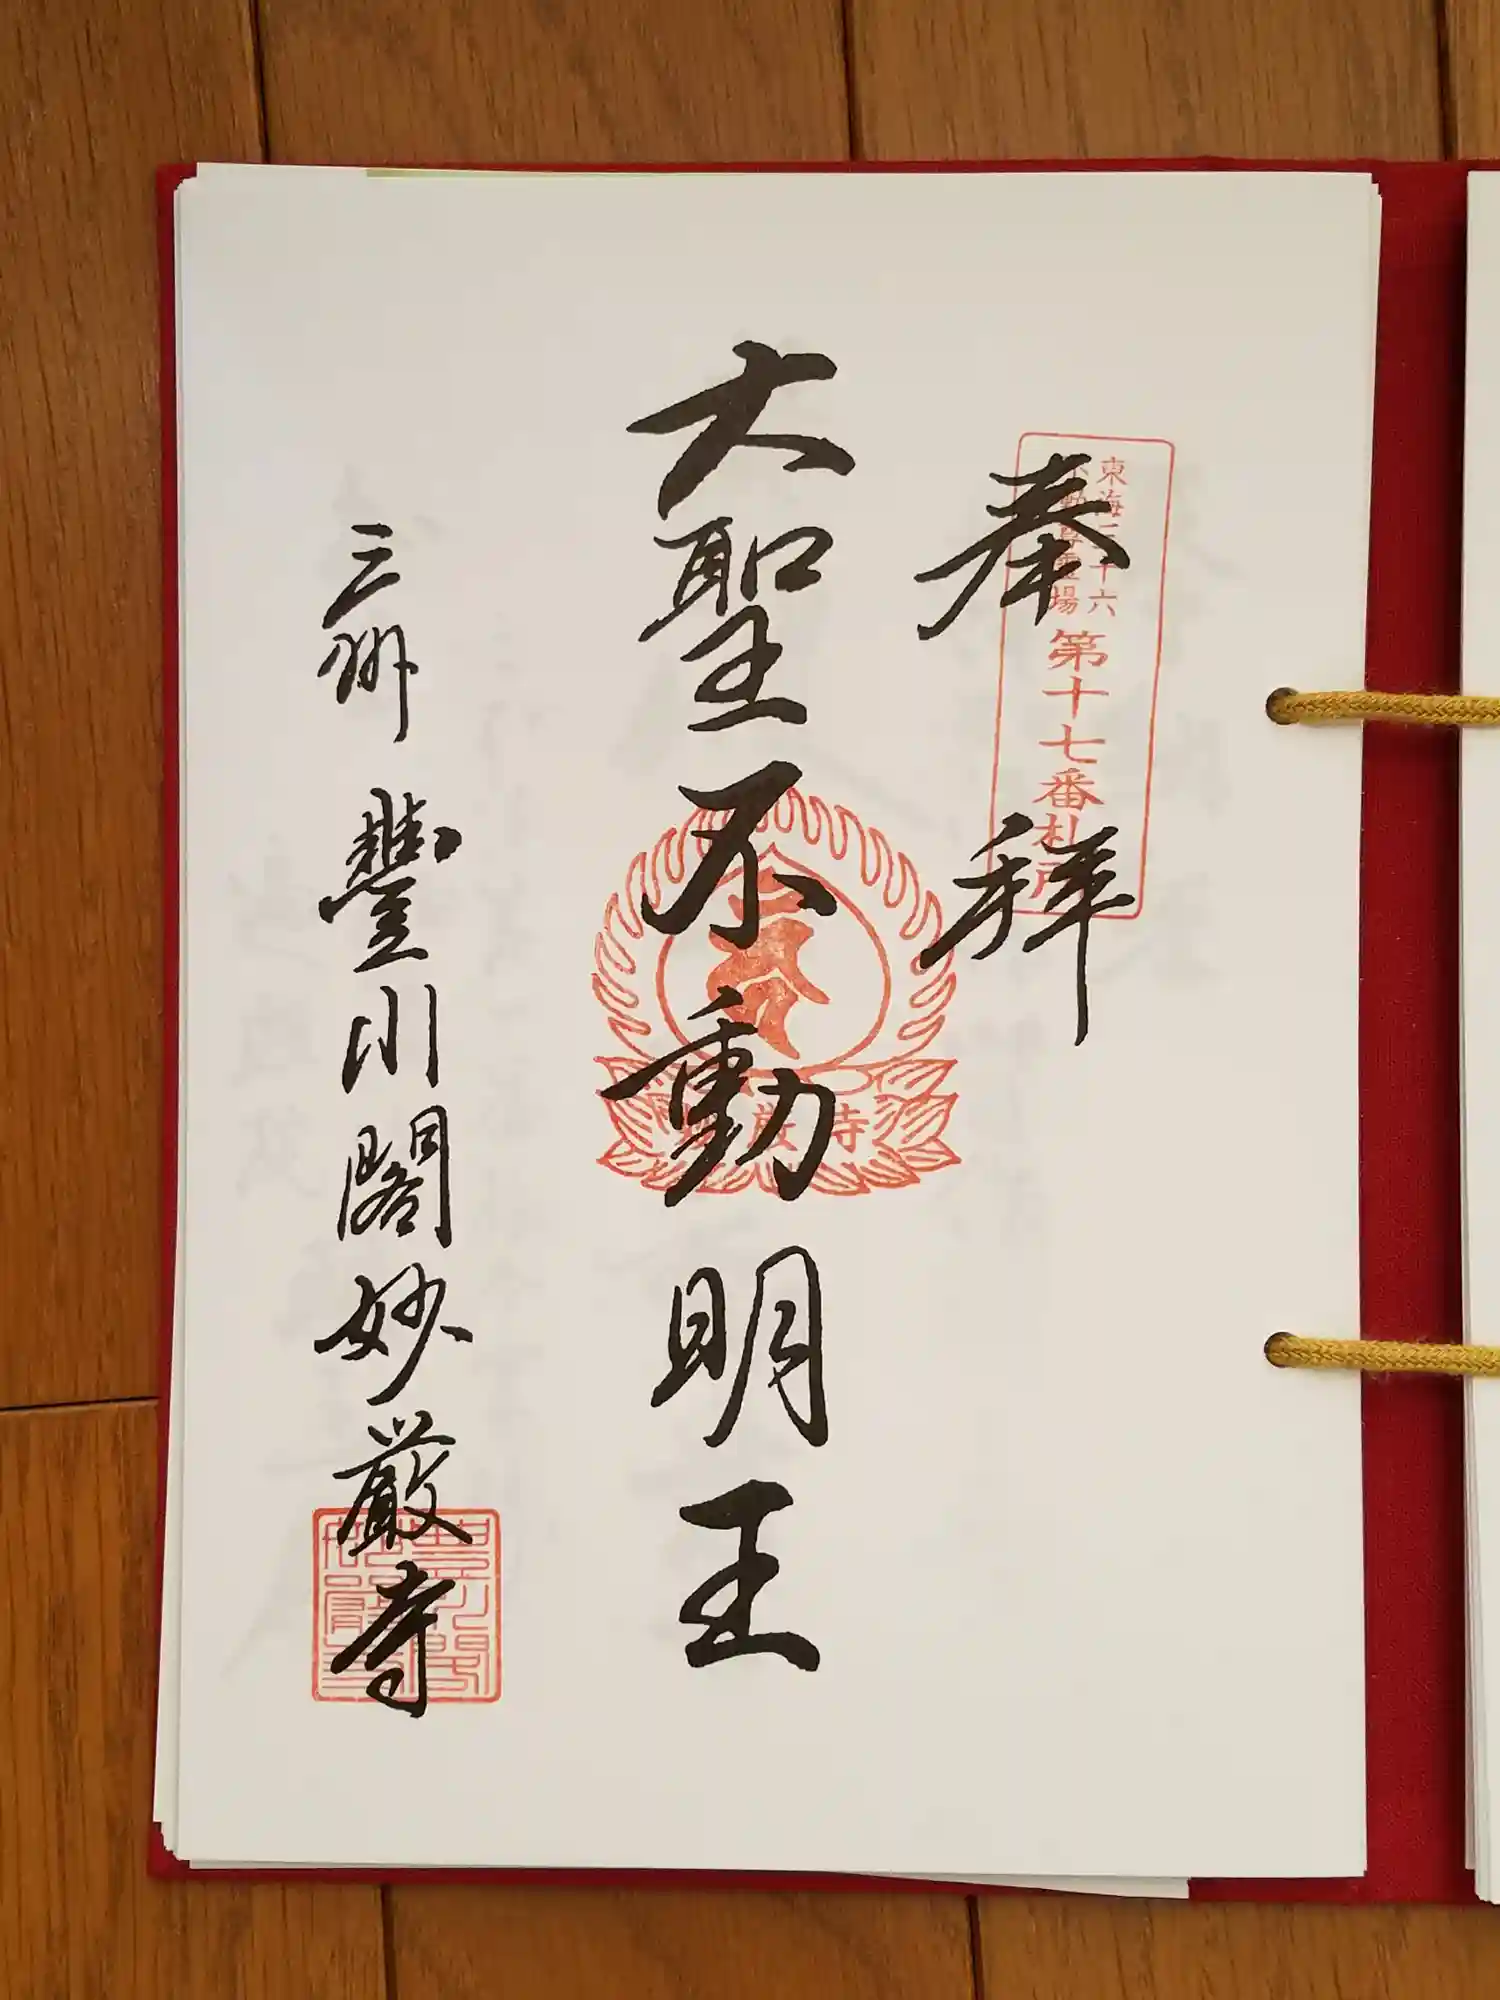 奉拜
東海三十六
不動尊霊場
第十七番札所
大聖不動明王
妙厳寺
三州豐川閣妙嚴寺
豊川閣
妙嚴寺